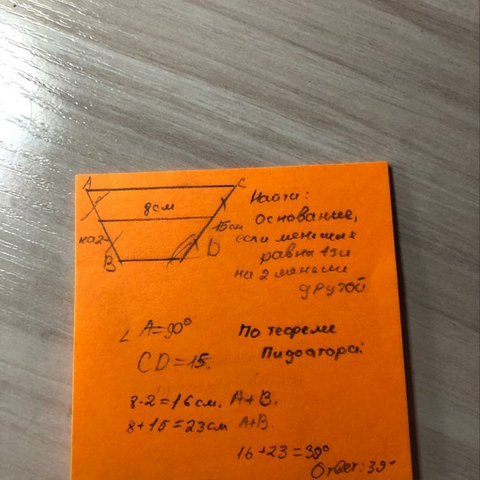 A C
8см
15см
на 2
B D
Найти:
основание,
если меньшая
равна 15и
на 2 меньше
другой
∠ A=90°
CD=15.
По теореме
Пифагора:
8·2=16 см. A+B.
8+15=23см A+B.
16+23=39°
Ответ: 39°